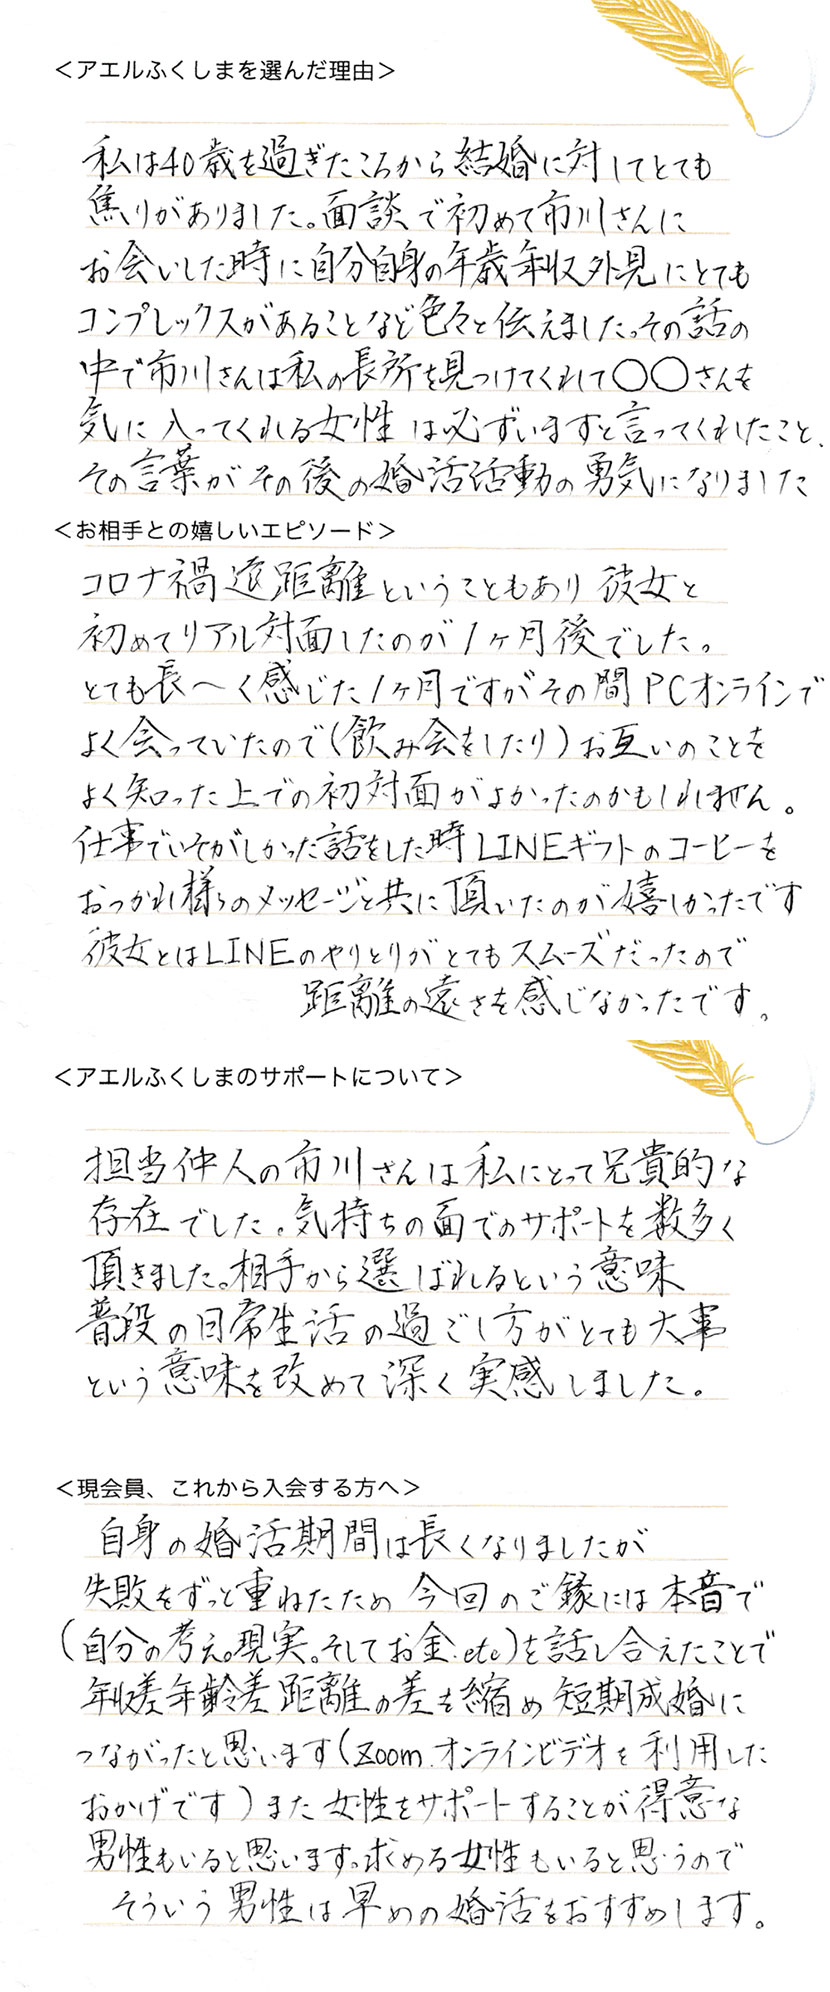 ＜アエルふくしまを選んだ理由＞
私は40歳を過ぎたころから結婚に対してとても
焦りがありました。面談で初めて市川さんに
お会いした時に自分自身の年歳年収外見にとても
コンプレックスがあることなど色々と伝えました。その話の
中で市川さんは私の長所を見つけてくれて〇〇さんを
気に入ってくれる女性は必ずいますと言ってくれたこと、
その言葉がその後の婚活活動の勇気になりました
＜お相手との嬉しいエピソード＞
コロナ禍遠距離ということもあり彼女と
初めてリアル対面したのが1ヶ月後でした。
とても長〜く感じた1ヶ月ですがその間PCオンラインで
よく会っていたので(飲み会をしたり)お互いのことを
よく知った上での初対面がよかったのかもしれません。
仕事でいそがしかった話をした時LINEギフトのコーヒーを
おつかれ様のメッセージと共に頂いたのが嬉しかったです
彼女とはLINEのやりとりがとてもスムーズだったので
距離の遠さを感じなかったです。
＜アエルふくしまのサポートについて＞
担当仲人の市川さんは私にとって兄貴的な
存在でした。気持ちの面でのサポートを数多く
頂きました。相手から選ばれるという意味
普段の日常生活の過ごし方がとても大事
という意味を改めて深く実感しました。
＜現会員、これから入会する方へ＞
自身の婚活期間は長くなりましたが
失敗をずっと重ねたため今回のご縁には本音で
(自分の考え。現実。そしてお金.etc)を話し合えたことで
年収差年齢差距離の差も縮め短期成婚に
つながったと思います(Zoom.オンラインビデオを利用した
おかげです)また女性をサポートすることが得意な
男性もいると思います。求める女性もいると思うので
そういう男性は早めの婚活をおすすめします。